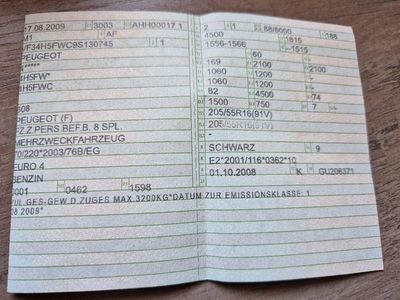 17.08.2009 3003 AHH00017 1
M1 AF
VF34H5FWC9S130745 1
PEUGEOT
******
4H5FW*
4H5FWC
PEUGEOT (F)
FZ.Z.PERS.BEF.B. 8 SPL.
MEHRZWECKFAHRZEUG
70/220*2003/76B/EG
EURO 4
BENZIN
0001 0462 1598
ZUL.GES-GEW.D.ZUGES MAX.3200KG*DATUM ZUR EMISSIONSKLASSE: 1
08.2009*
2 1 88/6000 188
4500 1815
1556-1566 –1515
60
169 2100 2100
1060 1200
1060 1200
82 4500 74
1500 750 7
205/55R16(91V)
205/55R16(91V)
SCHWARZ 9
E2*2001/116*0362*10
01.10.2008 K GU206371